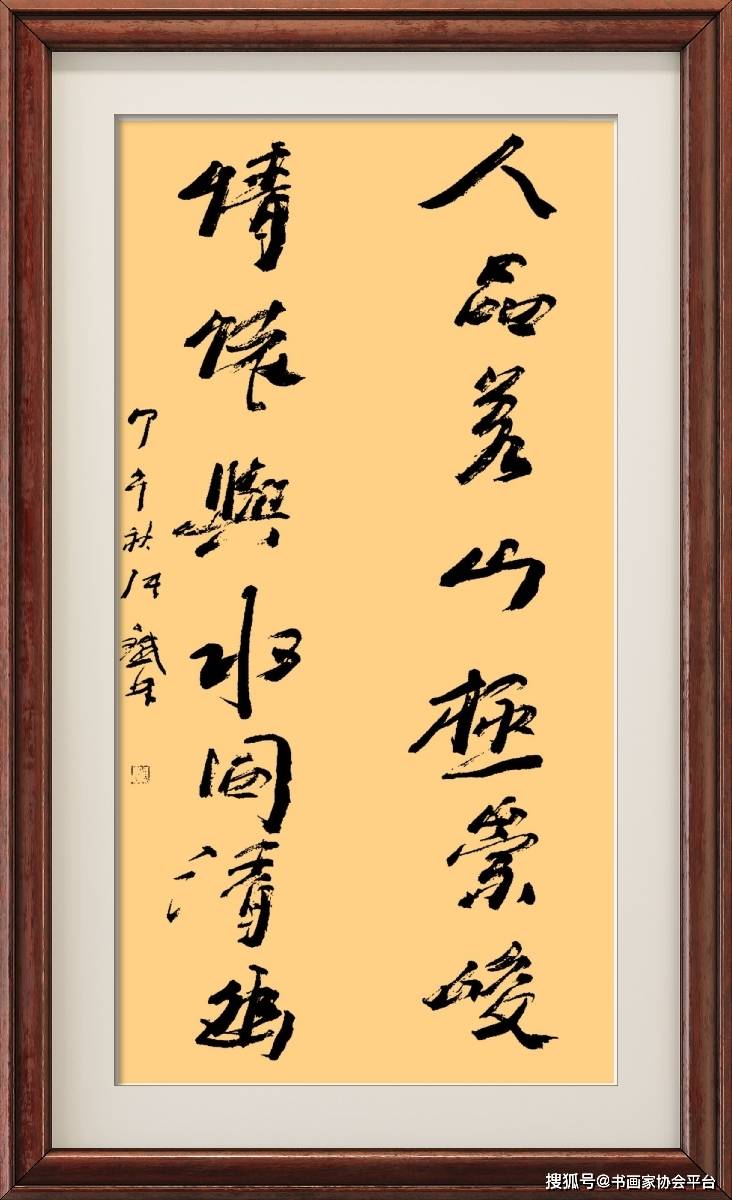 人品若山極崇峻
情懷與水同清幽
甲午秋
搜狐号@书画家协会平台